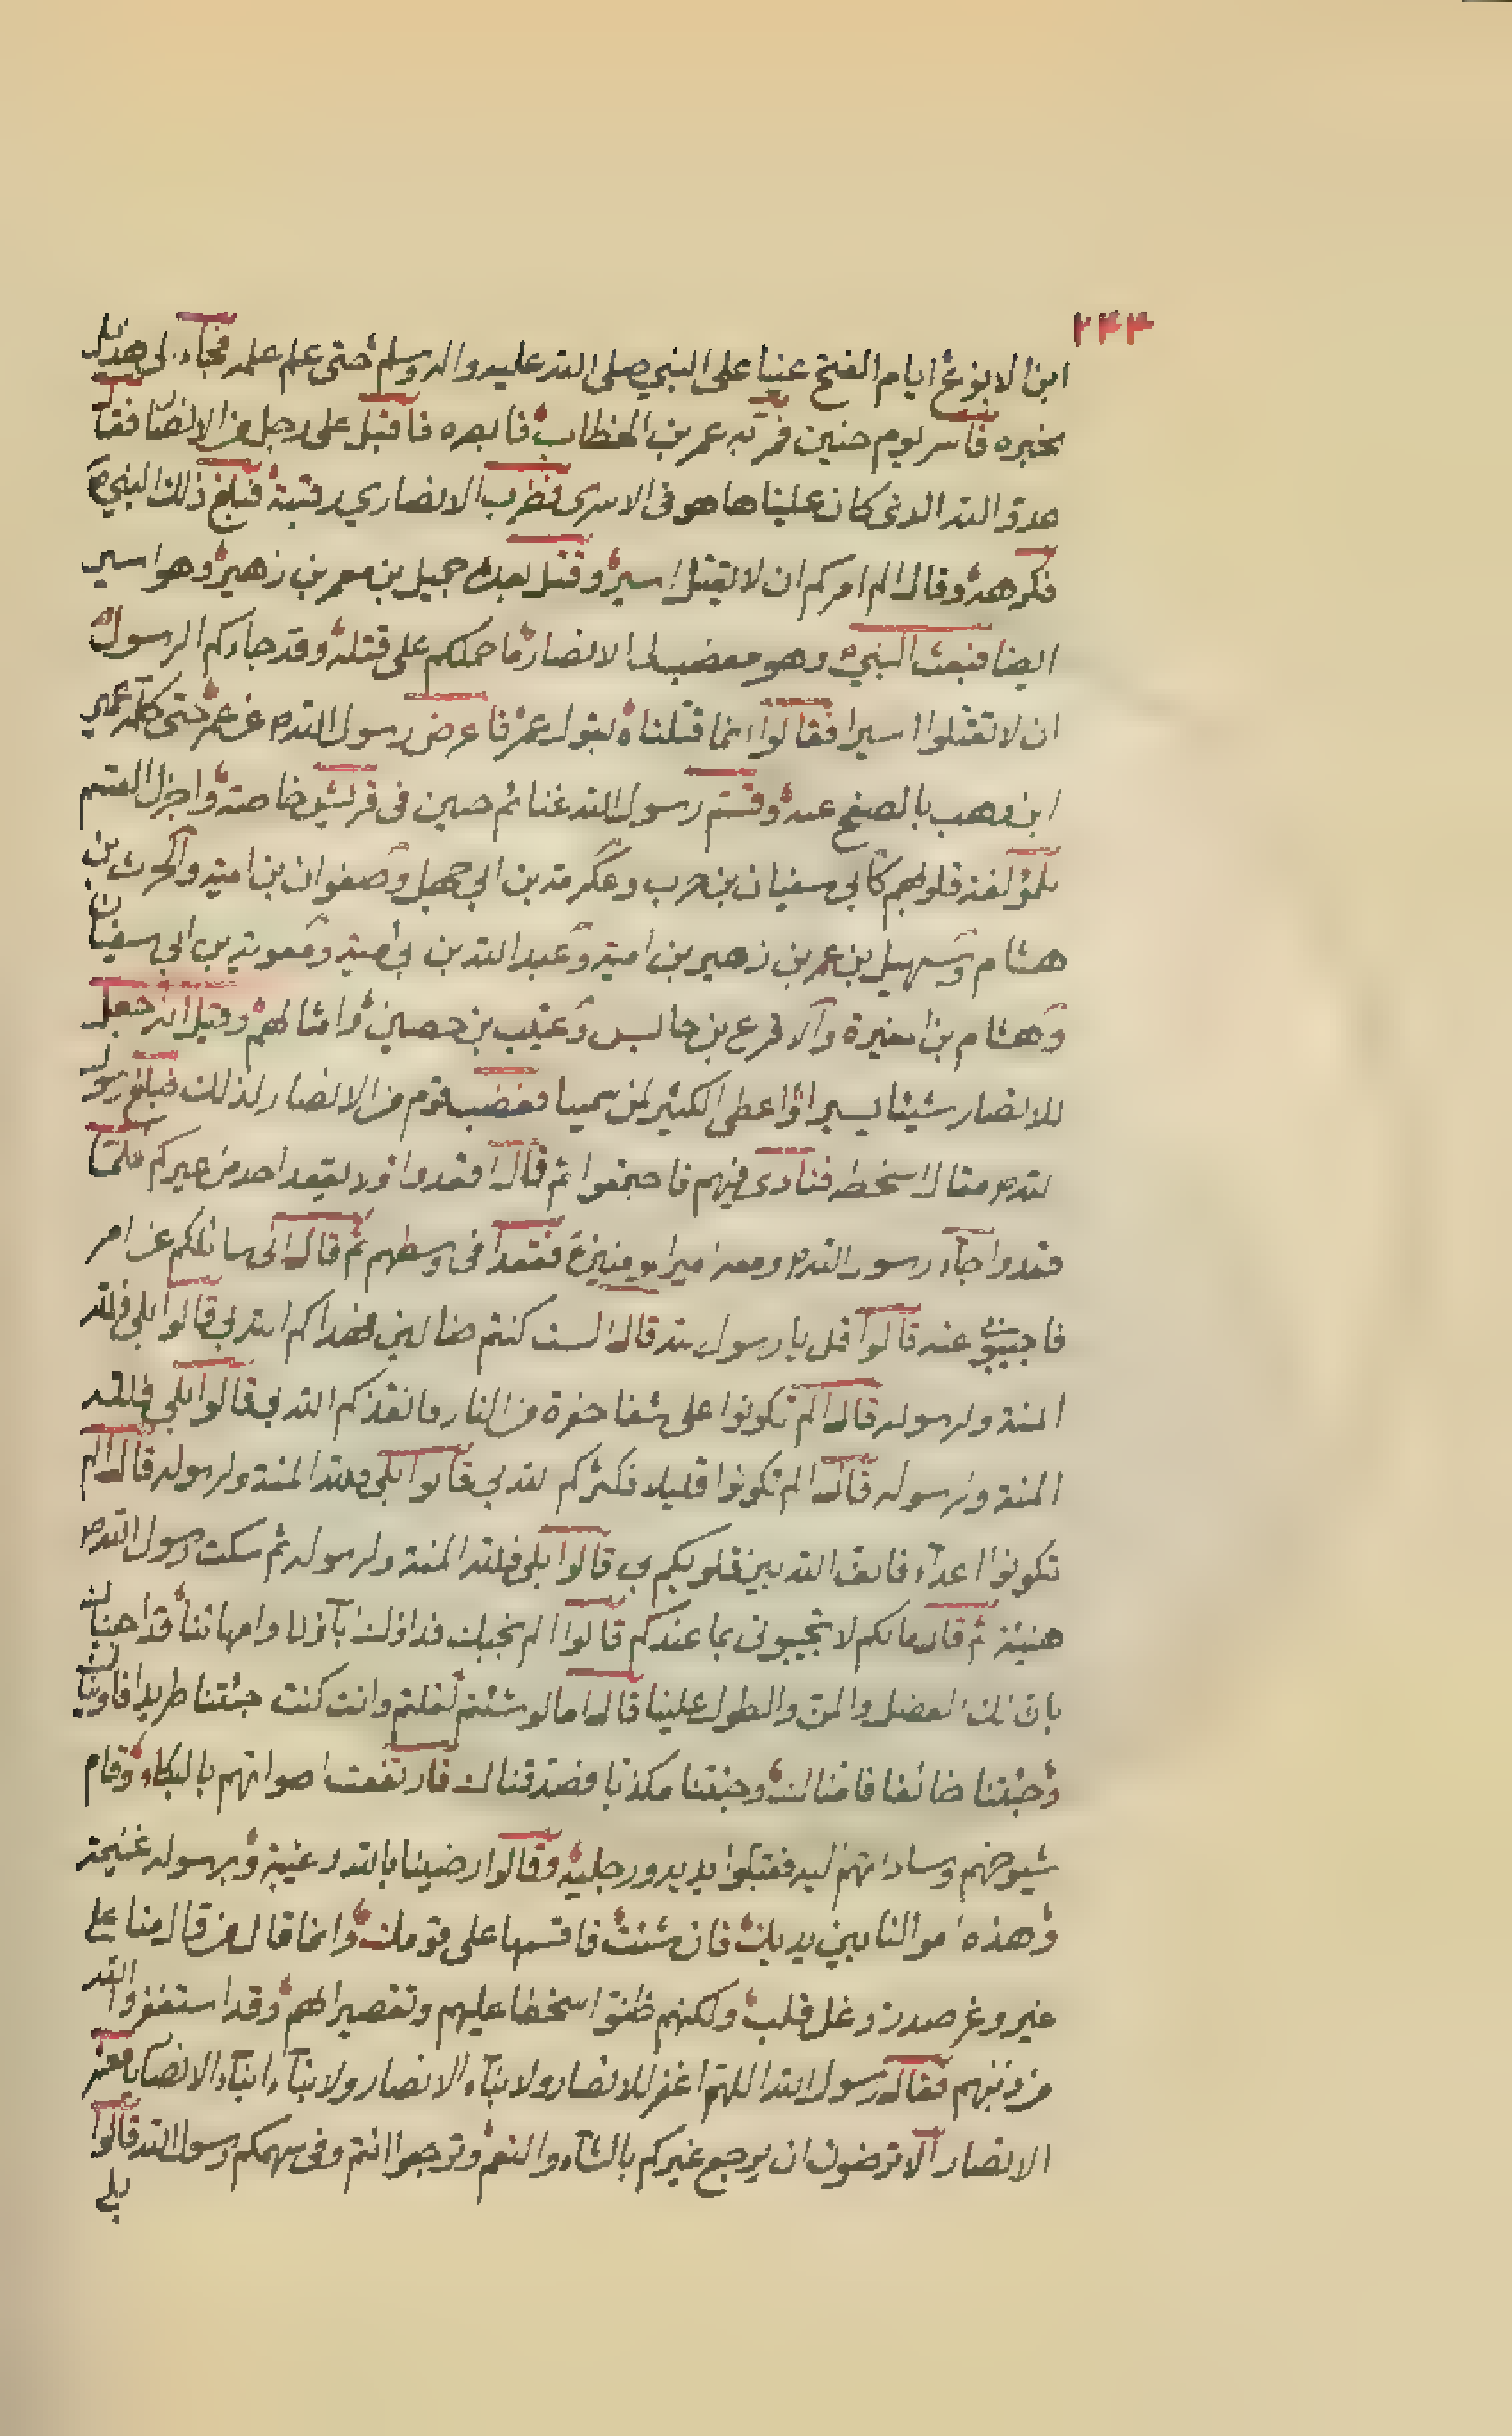 ۲۴۳
ابن الابوغ ايام الفتح عينا على النبي صلى الله عليه واله وسلم حتى علم علمه فجاء الى هذيل
يخبره فاسر يوم حنين فمر به عمر بن الخطاب فابصره فاقبل على رجل من الانصا فقال
عدو الله الذى كان علينا ها هو فى الاسرى فضرب الانصاري رقبته فبلغ ذلك النبي ص
فكرهه وقال الم امركم ان لا يقتل اسير وقتل بعده جميل بن معمر بن زهير وهو اسير
ايضا فبعث النبي ص وهو مغضب الى الانصار ما حملكم على قتله وقد جاءكم الرسول
ان لا تقتلوا اسيرا فقالوا انما قتلناه بقول عمر فاعرض رسول الله ص عن عمر حتى كلمه عمير
ابن وهب بالصفح عنه وقسم رسول الله غنائم حنين فى قريش خاصة واجزل القسم
للمؤلفة قلوبهم كابي سفيان بن حرب وعكرمة بن ابي جهل وصفوان بن امية والحرث بن
هشام وسهيل بن عمر بن زهير بن امية وعبد الله بن ابي امية ومعوية بن ابي سفيان
وهشام بن المغيرة والاقرع بن حابس وعيينه بن حصين وامثالهم وقيل انه جعل
للانصار شيئا يسيرا واعطى الكثير لمن سمينا فغضب قوم من الانصار لذلك فبلغ رسول
الله ص مقال اسخطه فنادى فيهم فاجتمعوا ثم قال اقعدوا ولا يقعد احد من غيركم فلما
قعدوا جاء رسول الله ص ومعه امير المؤمنين ع فقعدا فى وسطهم ثم قال انى سائلكم عن امر
فاجيبونى عنه قالوا قل يا رسول الله قال الست كنتم ضالين فهداكم الله بي قالوا بلى فلله
المنة ولرسوله قال الم تكونوا على شفا حفرة من النار فانقذكم الله بي قالوا بلى فلله
المنة ولرسوله قال الم تكونوا قليلا فكثركم الله بي قالوا بلى فلله المنة ولرسوله قال الم
تكونوا اعداء فالف الله بين قلوبكم بي قالوا بلى فلله المنة ولرسوله ثم سكت رسول الله ص
هنيئة ثم قال ما لكم لا تجيبونى بما عندكم قالوا الم نجبك فداؤك اباؤنا وامهاتنا قد اجبناك
بان لك الفضل والمن والطول علينا قال اما لو شئتم لقلتم وانت كنت جئتنا طريدا فاويناك
وجئتنا خائفا فامناك وجئتنا مكذبا فصدقناك فارتفعت اصواتهم بالبكاء وقام
شيوخهم وساداتهم اليه فقبلوا يديه ورجليه وقالوا رضينا بالله وعنه وبرسوله غنيمة
وهذه اموالنا بين يديك فان شئت فاقسمها على قومك وانما قال من قال منا على
غير وغر صدر وغل قلب ولكنهم ظنوا سخطا عليهم وتقصيرا لهم وقد استغفروا الله
من ذنبهم فقال رسول الله اللهم اغفر للانصار ولابناء الانصار ولابناء ابناء الانصار يا معشر
الانصار الا ترضون ان يرجع غيركم بالشاء والنعم وترجعوا انتم وفى سهمكم رسول الله قالوا
بلى